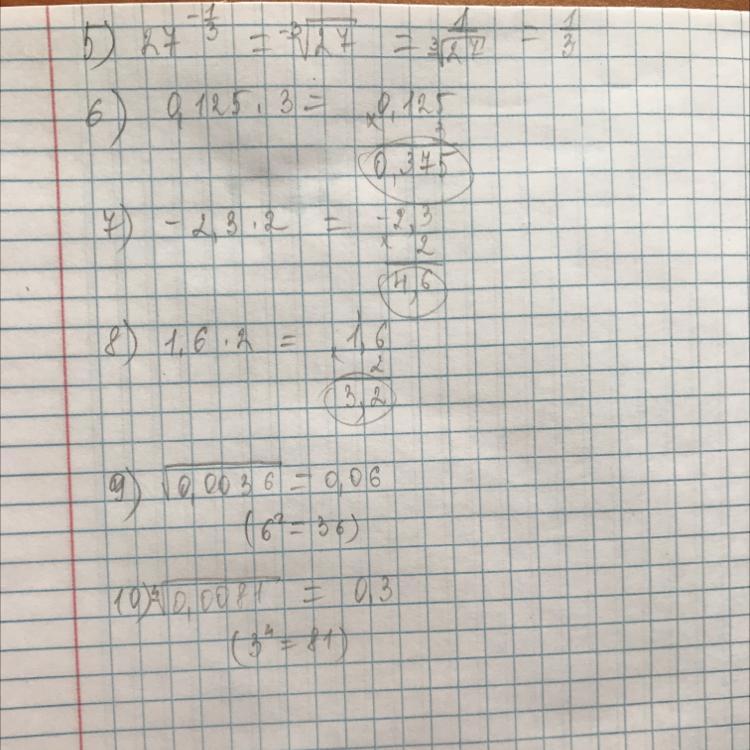 5) 27^(-1/3) = ⁻³√27 = 1/³√27 = 1/3
6) 0,125 · 3 = × 0,125
3
0,375
7) - 2,3 · 2 = -2,3
× 2
4,6
8) 1,6 · 2 = × 1,6
2
3,2
9) √0,0036 = 0,06
(6² = 36)
10) ⁴√0,0081 = 0,3
(3⁴ = 81)